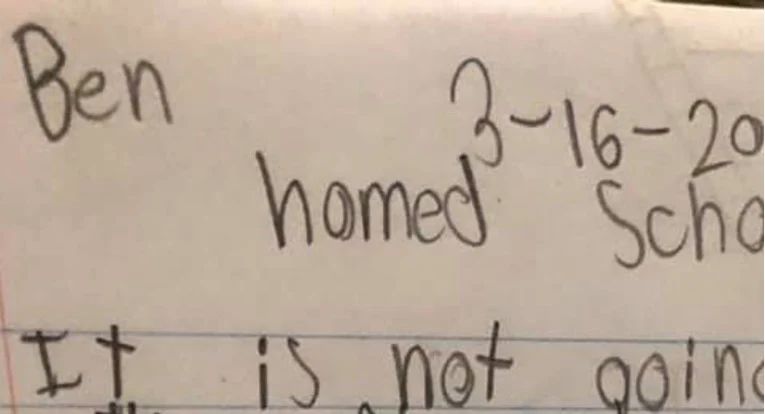 Ben
3-16-20
homed Scho
It is not going